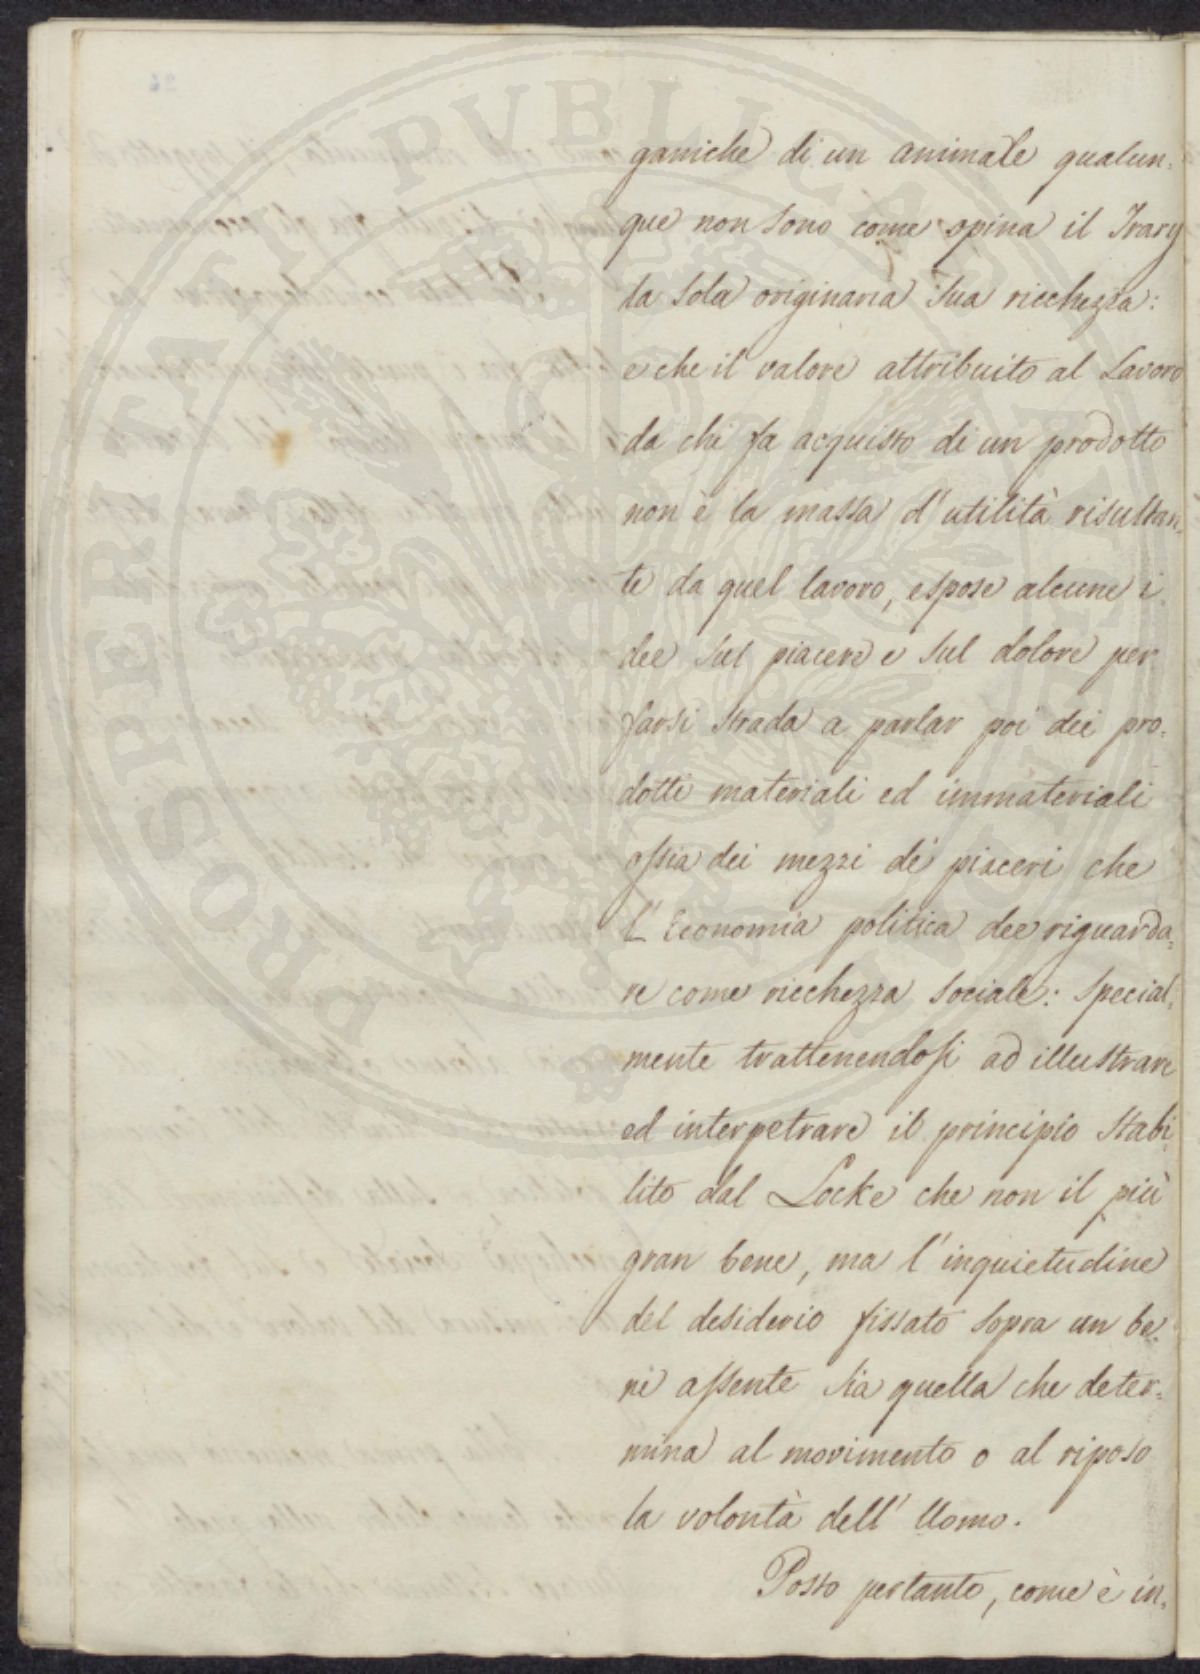 ganiche di un animale qualun=
que non sono come opina il Tracy
la sola originaria sua ricchezza:
e che il valore attribuito al Lavoro
da chi fa acquisto di un prodotto
non è la massa d'utilità risultan=
te da quel lavoro, espose alcune i=
dee sul piacere e sul dolore per
farsi strada a parlar poi dei pro=
dotti materiali ed immateriali
ossia dei mezzi de' piaceri che
l'Economia politica dee riguarda=
re come ricchezza sociale: special=
mente trattenendosi ad illustrare
ed interpetrare il principio stabi=
lito dal Locke che non il più
gran bene, ma l'inquietudine
del desiderio fissato sopra un be=
ne assente sia quella che deter=
mina al movimento o al riposo
la volontà dell'Uomo.
Posto pertanto, come è in=
PROSPERITATI PUBLICAE